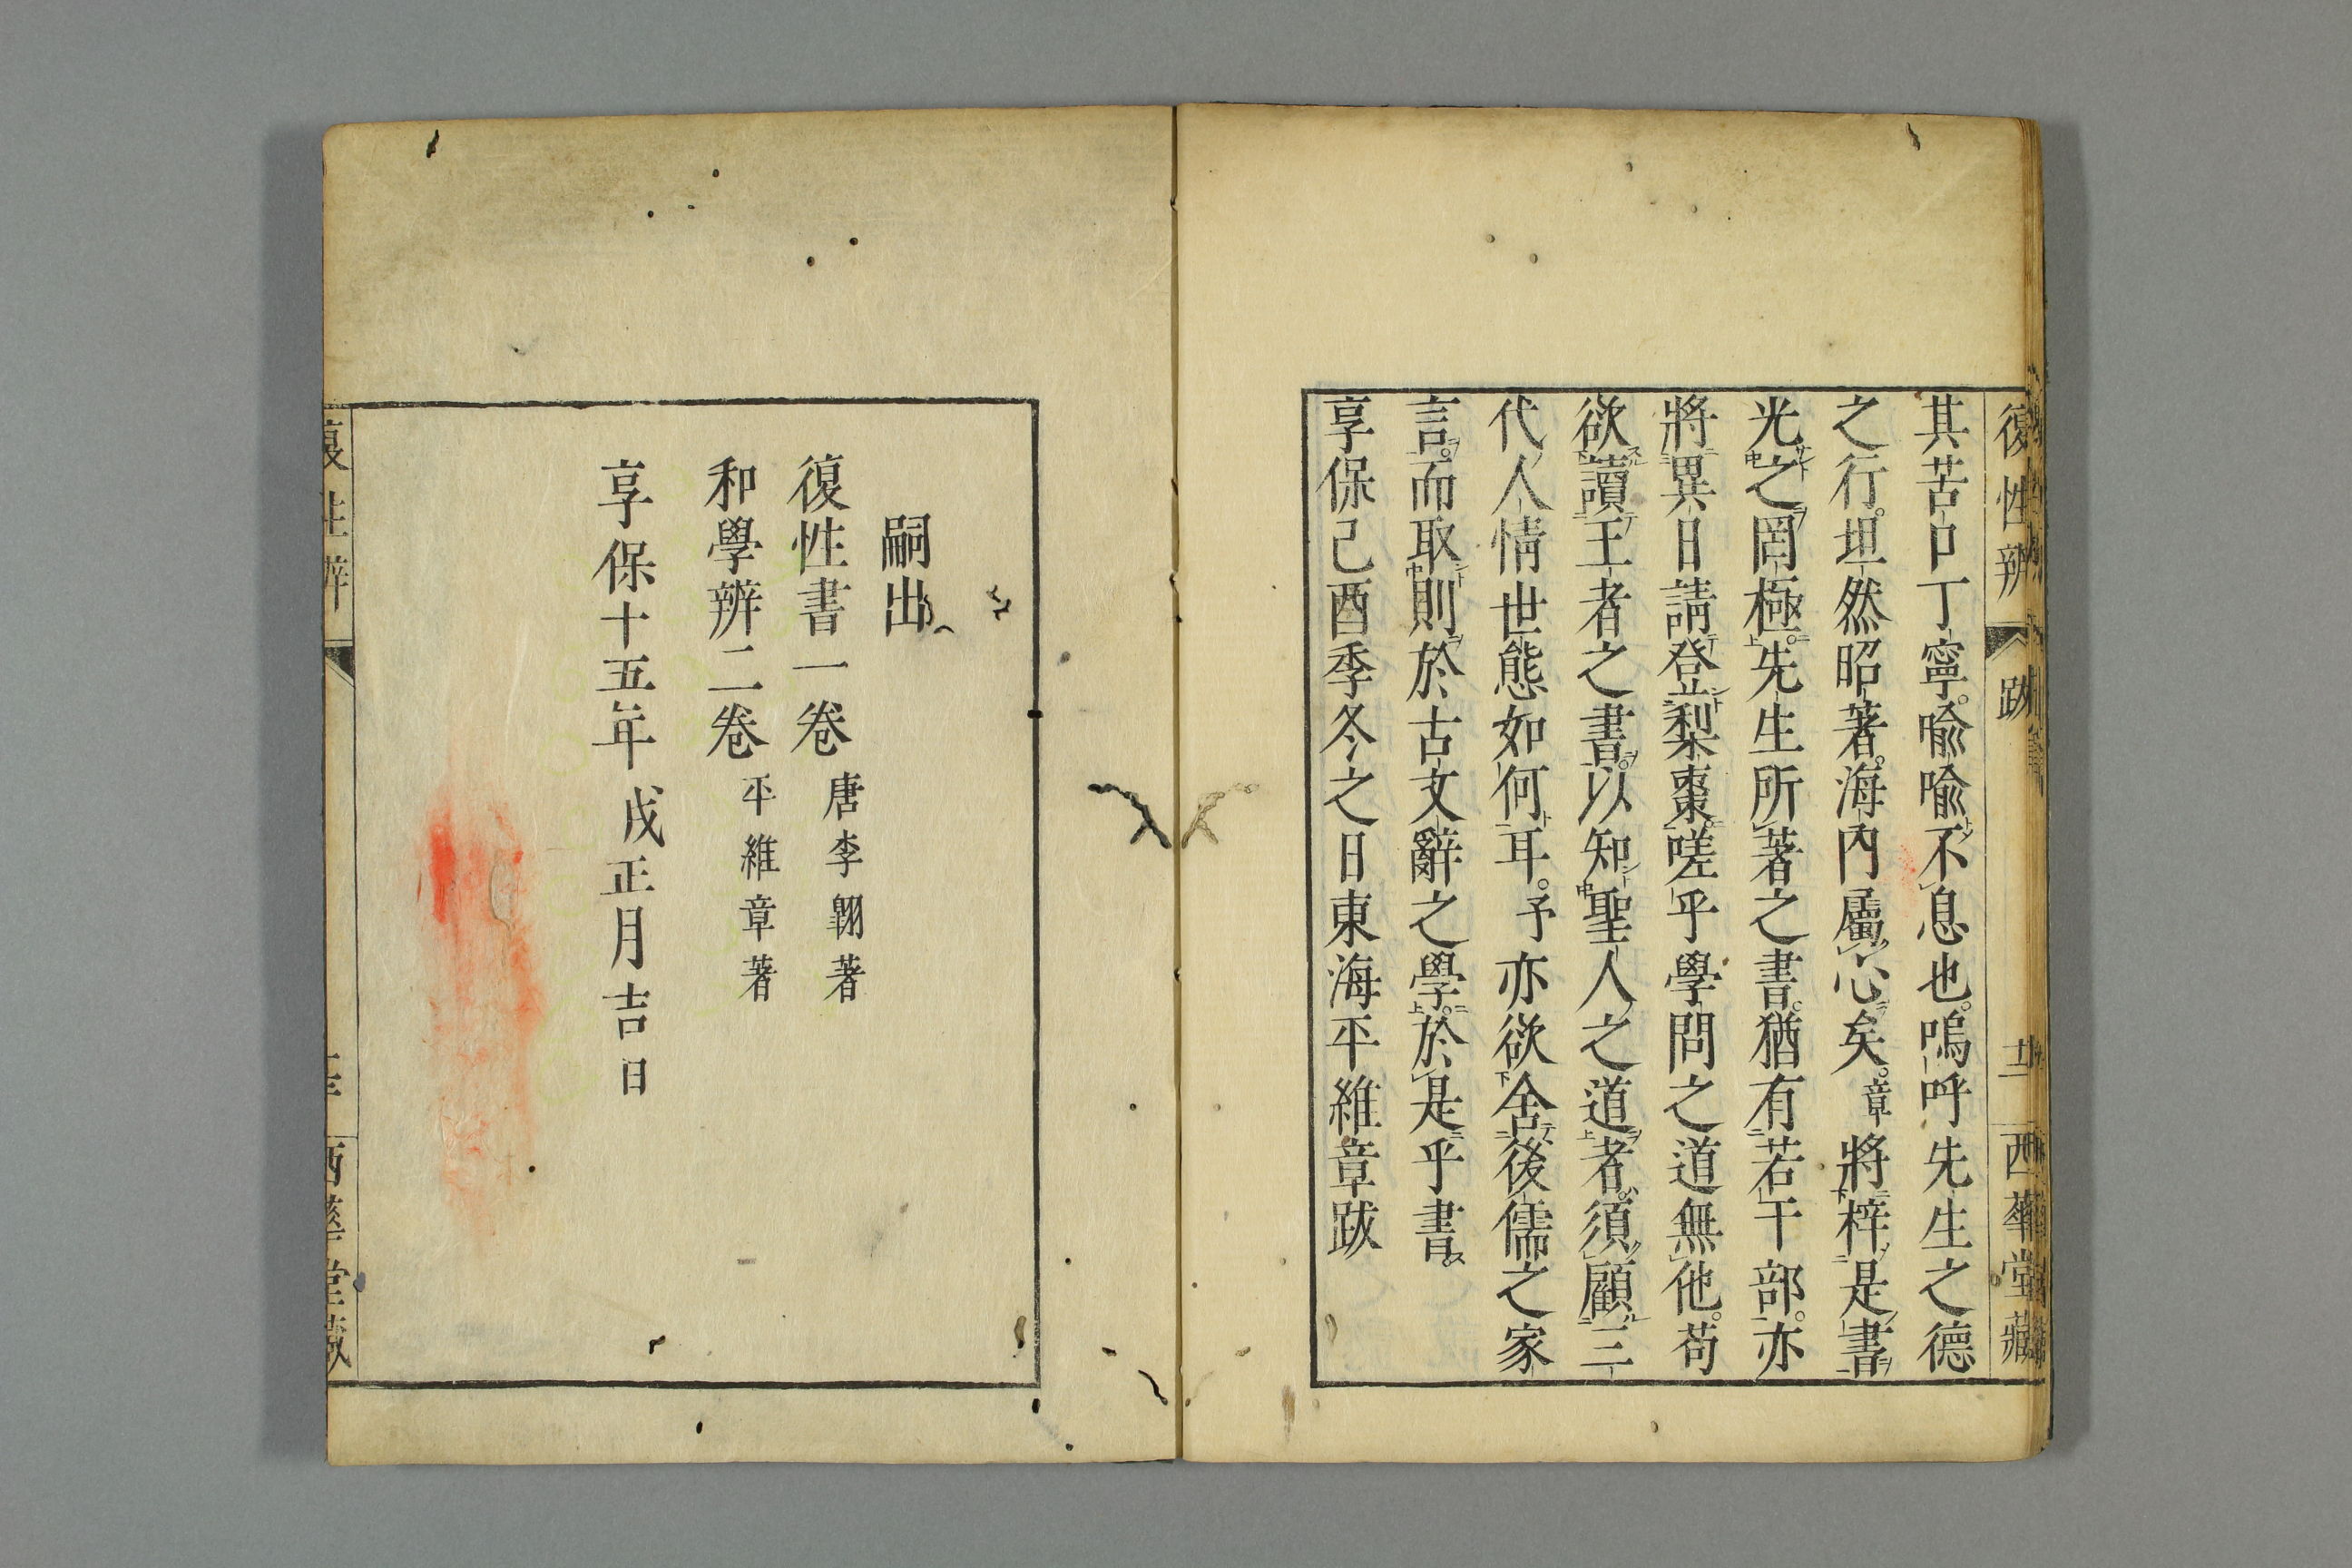 復性辨 跋 十二 西華堂藏
其苦口丁寧。喩喩不息也。嗚呼先生之德
之行。坦然昭著。海內屬心矣。章將梓是書
光之罔極。先生所著之書。猶有若干部。亦
將異日請登梨棗。嗟乎學問之道無他。苟
欲讀王者之書。以知聖人之道者。須顧三
代人情世態如何耳。予亦欲舍後儒之家
言。而取則於古文辭之學。於是乎書。
享保己酉季冬之日東海平維章跋
嗣出
復性書一卷 唐李翺著
和學辨二卷 平維章著
享保十五年戌正月吉日
復性辨 西華堂藏